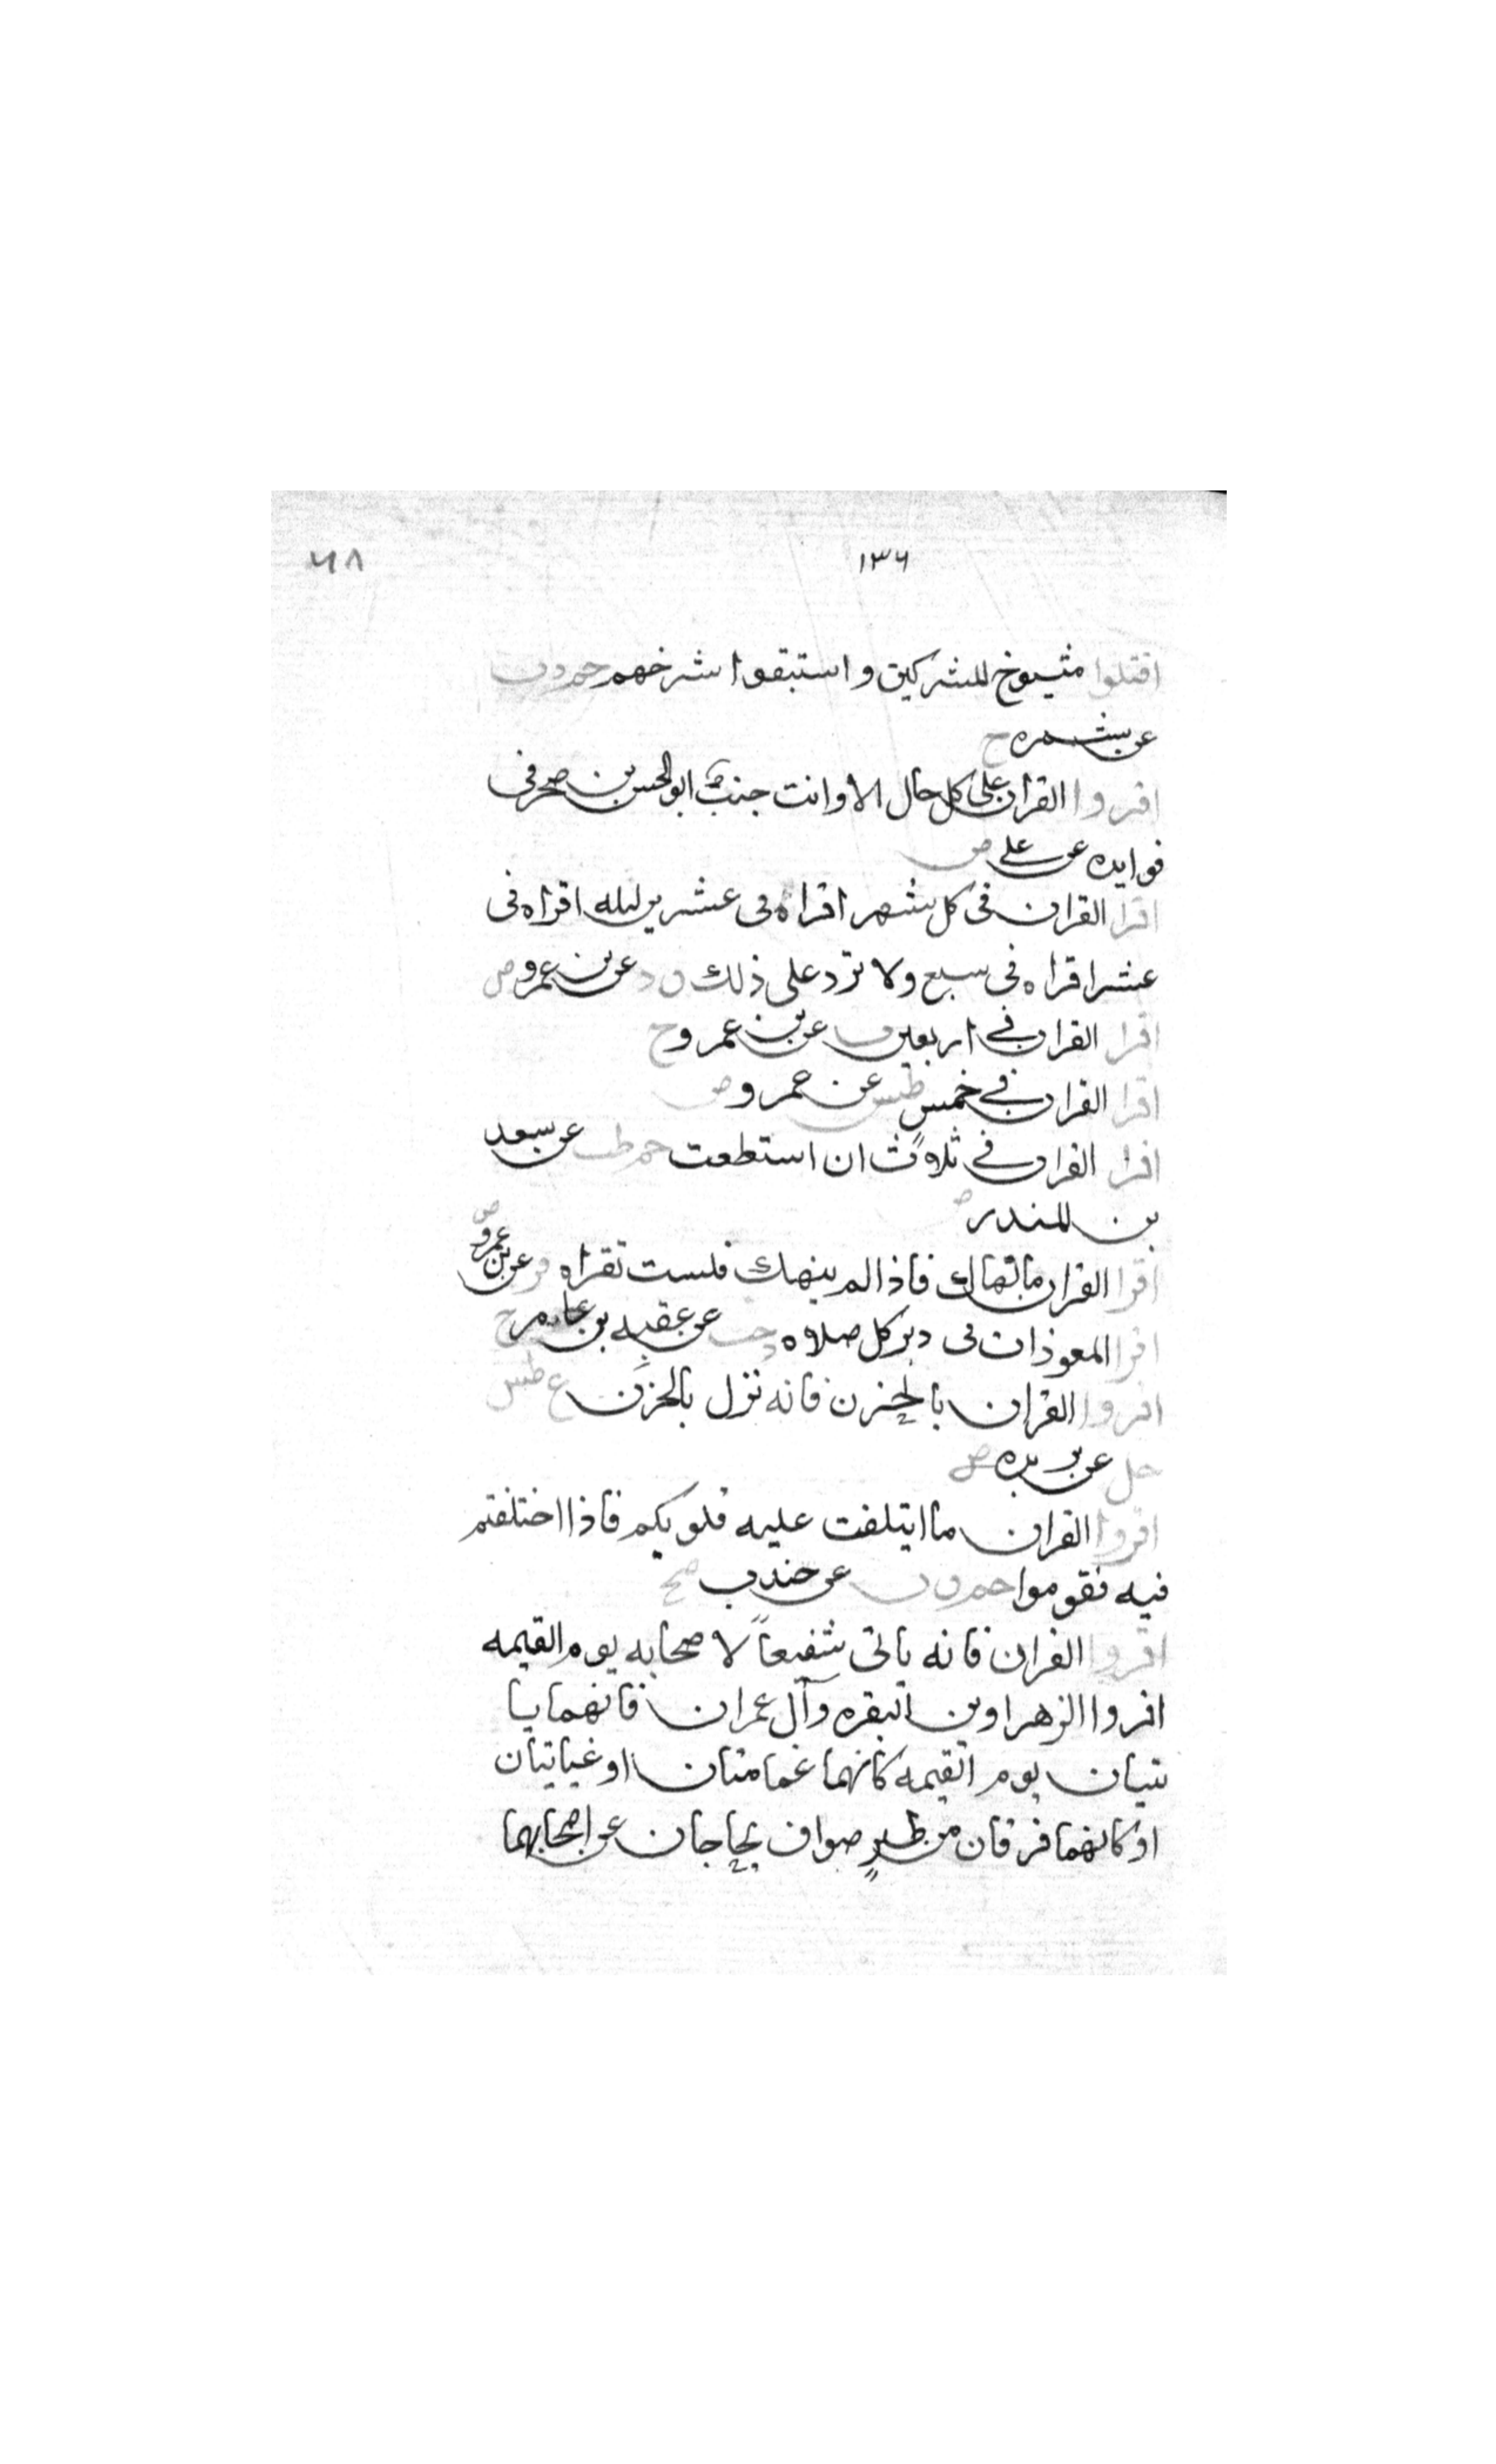 ١٣٦ ٦٨
اقتلوا شيوخ المشركين واستبقوا شرخهم حم د ت
عن سمره ح
اقروا القران على كل حال الا وانت جنب ابو الحسن بن صخر فى
فوايده عن على ض
اقرا القران فى كل شهر اقراه فى عشرين ليله اقراه فى
عشر اقراه فى سبع ولا تزد على ذلك ق د عن بن عمرو ص
اقرا القران فى اربعين ت عن بن عمرو ح
اقرا القران فى خمس طب عن عمرو ض
اقرا القران فى ثلاث ان استطعت حم طب عن سعد
بن المنذر ص
اقرا القران ما نهاك فاذا لم ينهك فلست تقراه فر عن بن عمرو ض
اقرا المعوذات فى دبر كل صلاه د حب عن عقبه بن عامر ح
اقروا القران بالحزن فانه نزل بالحزن ع طس
حل عن بريده ض
اقروا القران ما ايتلفت عليه قلوبكم فاذا اختلفتم
فيه فقوموا حم ق ن عن جندب صح
اقروا القران فانه ياتى شفيعاً لاصحابه يوم القيمه
اقروا الزهراوين البقره وآل عمران فانهما يا
تيان يوم القيمه كانهما غمامتان او غيايتان
او كانهما فرقان من طيرٍ صواف يحاجان عن اصحابهما